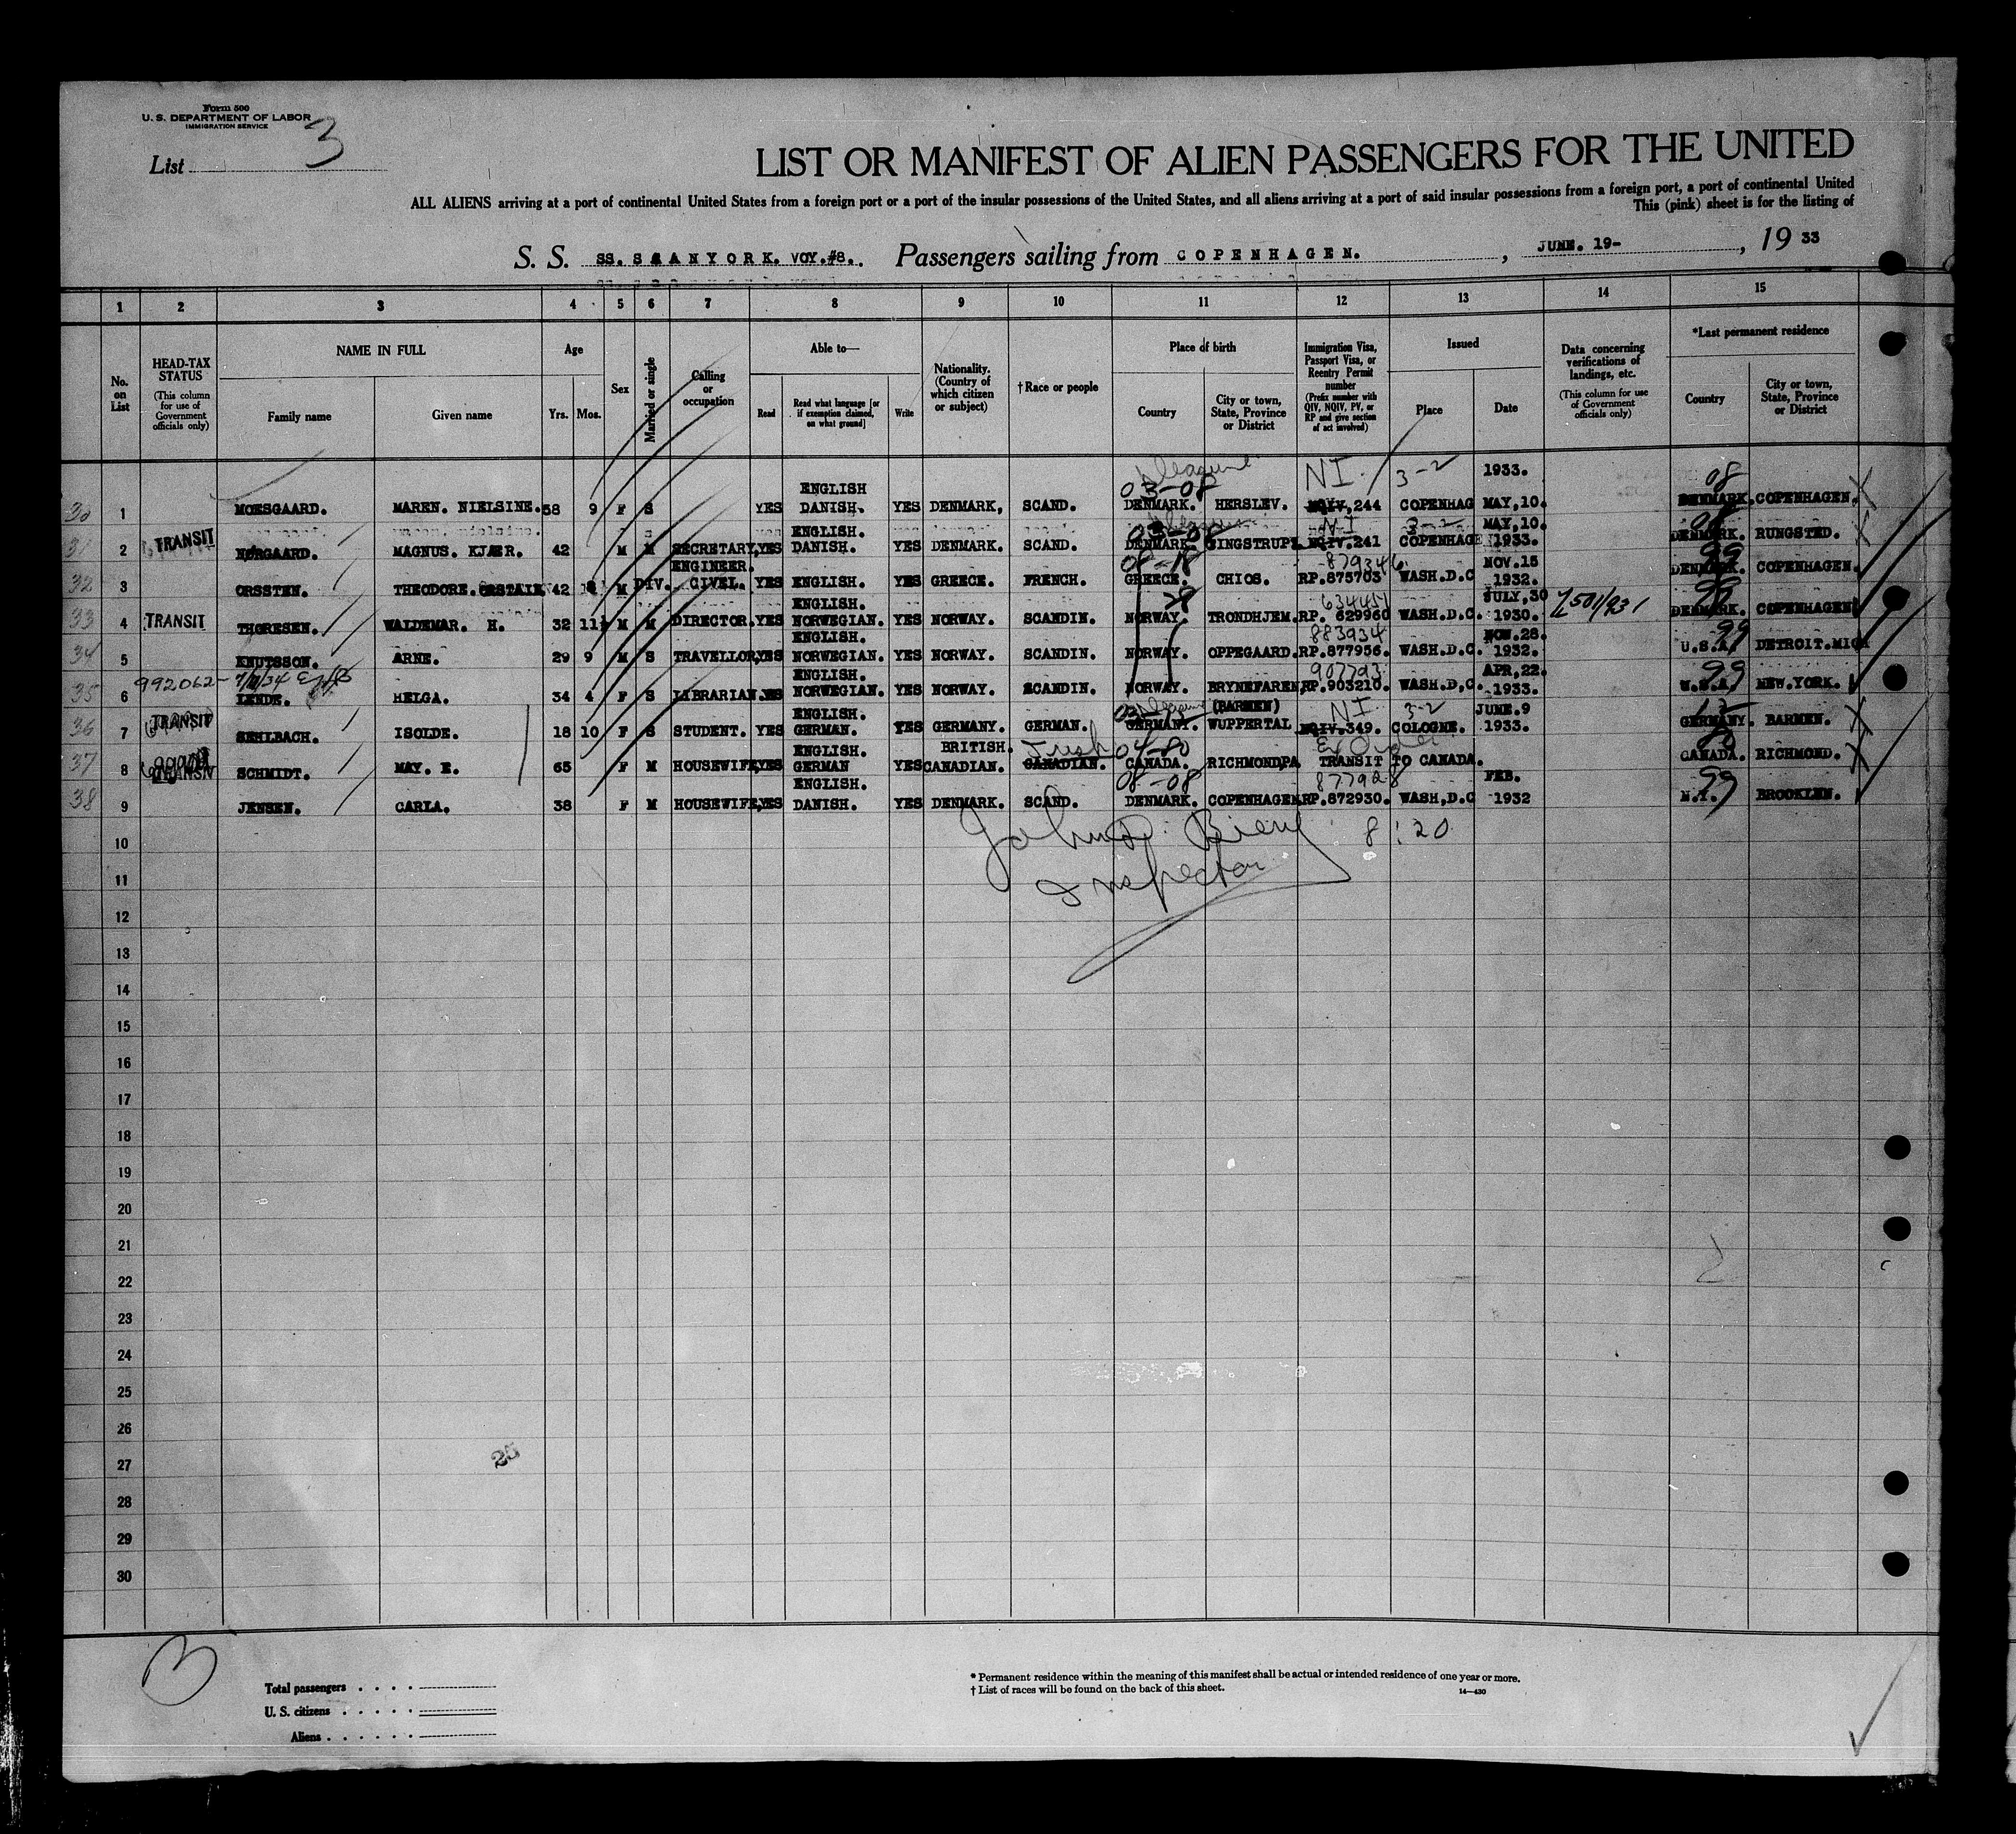 Form 500
U. S. DEPARTMENT OF LABOR
IMMIGRATION SERVICE
List 3
LIST OR MANIFEST OF ALIEN PASSENGERS FOR THE UNITED
ALL ALIENS arriving at a port of continental United States from a foreign port or a port of the insular possessions of the United States, and all aliens arriving at a port of said insular possessions from a foreign port, a port of continental United
This (pink) sheet is for the listing of
S. S. SS. SCANYORK. VOY.#8. Passengers sailing from COPENHAGEN. , JUNE. 19- , 19 33
1 2 3 4 5 6 7 8 9 10 11 12 13 14 15
No. on List
HEAD-TAX STATUS (This column for use of Government officials only)
NAME IN FULL
Family name
Given name
Age
Yrs. Mos.
Sex
Married or single
Calling or occupation
Able to—
Read
Read what language [or if exemption claimed, on what ground]
Write
Nationality. (Country of which citizen or subject)
†Race or people
Place of birth
Country
City or town, State, Province or District
Immigration Visa, Passport Visa, or Reentry Permit number (Prefix number with QIV, NQIV, PV, or RP and give section of act involved)
Issued
Place
Date
Data concerning verifications of landings, etc. (This column for use of Government officials only)
*Last permanent residence
Country
City or town, State, Province or District
03-08 NI. 3-2 1933. 08
30 1 MOESGAARD. MAREN. NIELSINE. 58 9 F S YES ENGLISH DANISH. YES DENMARK, SCAND. DENMARK. HERSLEV. NQIV.244 COPENHAG MAY,10. DENMARK. COPENHAGEN.
03-08 NI 3-2
31 TRANSIT 2 NØRGAARD. MAGNUS. KJÆR. 42 M M SECRETARY, YES ENGLISH. DANISH. YES DENMARK. SCAND. DENMARK. GINGSTRUP. NQIV.241 COPENHAGE MAY,10. 1933. DENMARK. RUNGSTED.
08-18 879346
32 3 ORSSTEN. THEODORE. 42 M DIV. ENGINEER. CIVEL. YES ENGLISH. YES GREECE. FRENCH. GREECE. CHIOS. RP.875703 WASH.D.C NOV.15 1932. DENMARK. COPENHAGEN.
634451
33 TRANSIT 4 THORESEN. WALDEMAR. H. 32 11 M M DIRECTOR. YES ENGLISH. NORWEGIAN. YES NORWAY. SCANDIN. NORWAY. TRONDHJEM. RP. 629960 WASH.D.C. JULY,30 1930. DENMARK. COPENHAGEN.
883934 99
34 5 KNUTSSON. ARNE. 29 9 M S TRAVELLOR, YES ENGLISH. NORWEGIAN. YES NORWAY. SCANDIN. NORWAY. OPPEGAARD. RP.877956. WASH.D.C. NOV.28. 1932. U.S.A. DETROIT.MICH
992062- 907793 99
35 6 LENDE. HELGA. 34 4 F S LIBRARIAN. YES ENGLISH. NORWEGIAN. YES NORWAY. SCANDIN. NORWAY. BRYNEFAREN, RP.903210. WASH.D.C. APR,22. 1933. U.S.A. NEW.YORK.
NI 3-2
36 TRANSIT 7 SEHLBACH. ISOLDE. 18 10 F S STUDENT. YES ENGLISH. GERMAN. YES GERMANY. GERMAN. GERMANY. (BARMEN) WUPPERTAL NQIV.349. COLOGNE. JUNE.9 1933. GERMANY. BARMEN.
Irish 04-80
37 TRANSIT 8 SCHMIDT. MAY. E. 65 F M HOUSEWIFE, YES ENGLISH. GERMAN YES BRITISH. CANADIAN. CANADIAN. CANADA. RICHMOND, TRANSIT TO CANADA. CANADA. RICHMOND.
08-08 877928 99
38 9 JENSEN. CARLA. 38 F M HOUSEWIFE, YES ENGLISH. DANISH. YES DENMARK. SCAND. DENMARK. COPENHAGEN. RP.872930. WASH,D.C FEB. 1932 N.Y. BROOKLEN.
10 8:20
Inspector
11
12
13
14
15
16
17
18
19
20
21
22
23
24
25
26
25
27
28
29
30
3
Total passengers
U. S. citizens
Aliens
* Permanent residence within the meaning of this manifest shall be actual or intended residence of one year or more.
† List of races will be found on the back of this sheet.
14—430